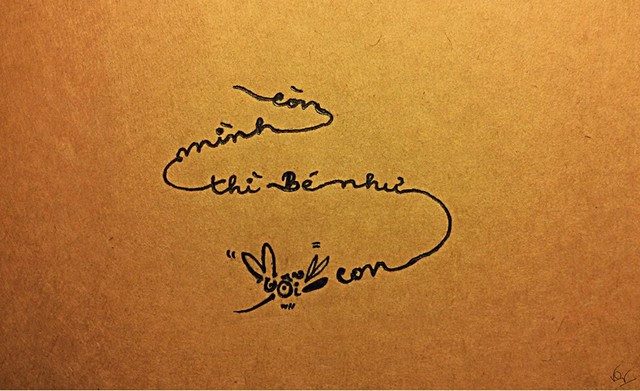 còn
mình
thì Bé như
Muỗi con